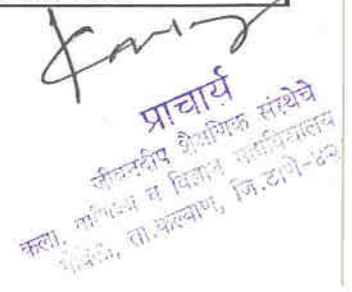 प्राचार्य
जीवनदीप शैक्षणिक संस्थेचे
कला, वाणिज्य व विज्ञान महाविद्यालय
ता.कल्याण, जि.ठाणे-४२